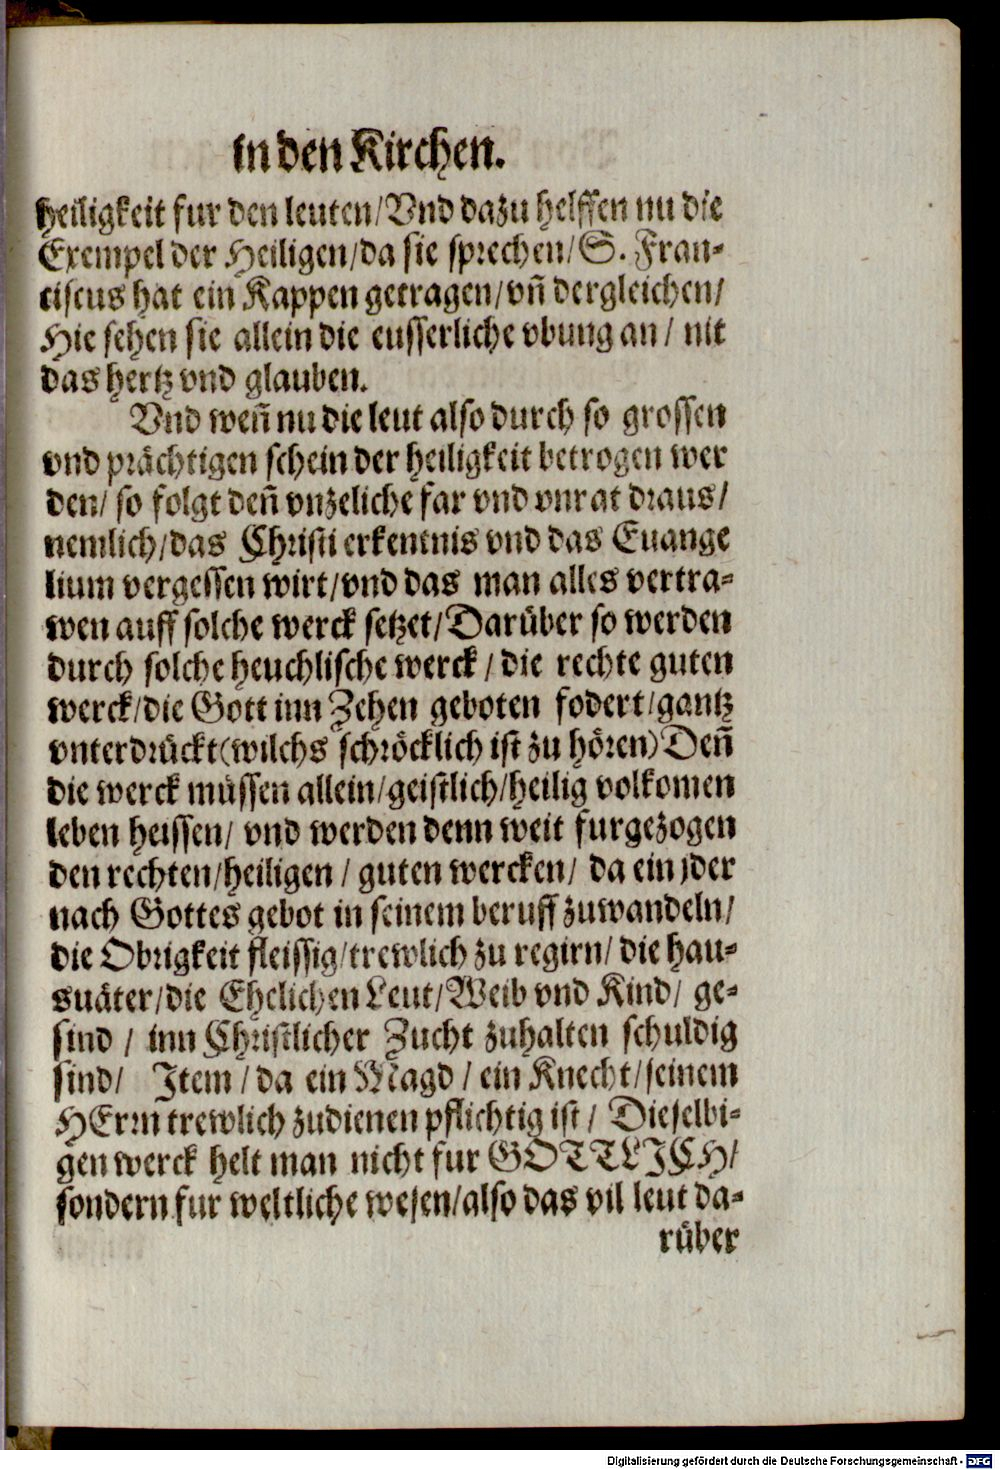 in den Kirchen.
heiligkeit fur den leuten/Vnd dazu helffen nu die
Exempel der Heiligen/da sie sprechen/S. Fran-
ciscus hat ein Kappen getragen/vñ dergleichen/
Hie sehen sie allein die eusserliche vbung an/ nit
das hertz vnd glauben.
Vnd weñ nu die leut also durch so grossen
vnd prächtigen schein der heiligkeit betrogen wer
den/ so folgt deñ vnzeliche far vnd vnrat draus/
nemlich/das Christi erkentnis vnd das Euange
lium vergessen wirt/vnd das man alles vertra-
wen auff solche werck setzet/Darüber so werden
durch solche heuchlische werck/die rechte guten
werck/die Gott inn Zehen geboten fodert/gantz
vnterdrückt(wilchs schröcklich ist zu hören)Deñ
die werck müssen allein/geistlich/heilig volkomen
leben heissen/ vnd werden denn weit furgezogen
den rechten/heiligen/ guten wercken/ da ein jder
nach Gottes gebot in seinem beruff zuwandeln/
die Obrigkeit fleissig/trewlich zu regirn/ die hau-
suäter/die Ehelichen Leut/Weib vnd Kind/ ge-
sind / inn Christlicher Zucht zuhalten schuldig
sind/ Item/da ein Magd/ein Knecht/seinem
HErrn trewlich zudienen pflichtig ist/ Dieselbi-
gen werck helt man nicht fur GOTTLICH/
sondern fur weltliche wesen/also das vil leut da-
rüber
Digitalisierung gefördert durch die Deutsche Forschungsgemeinschaft - DFG